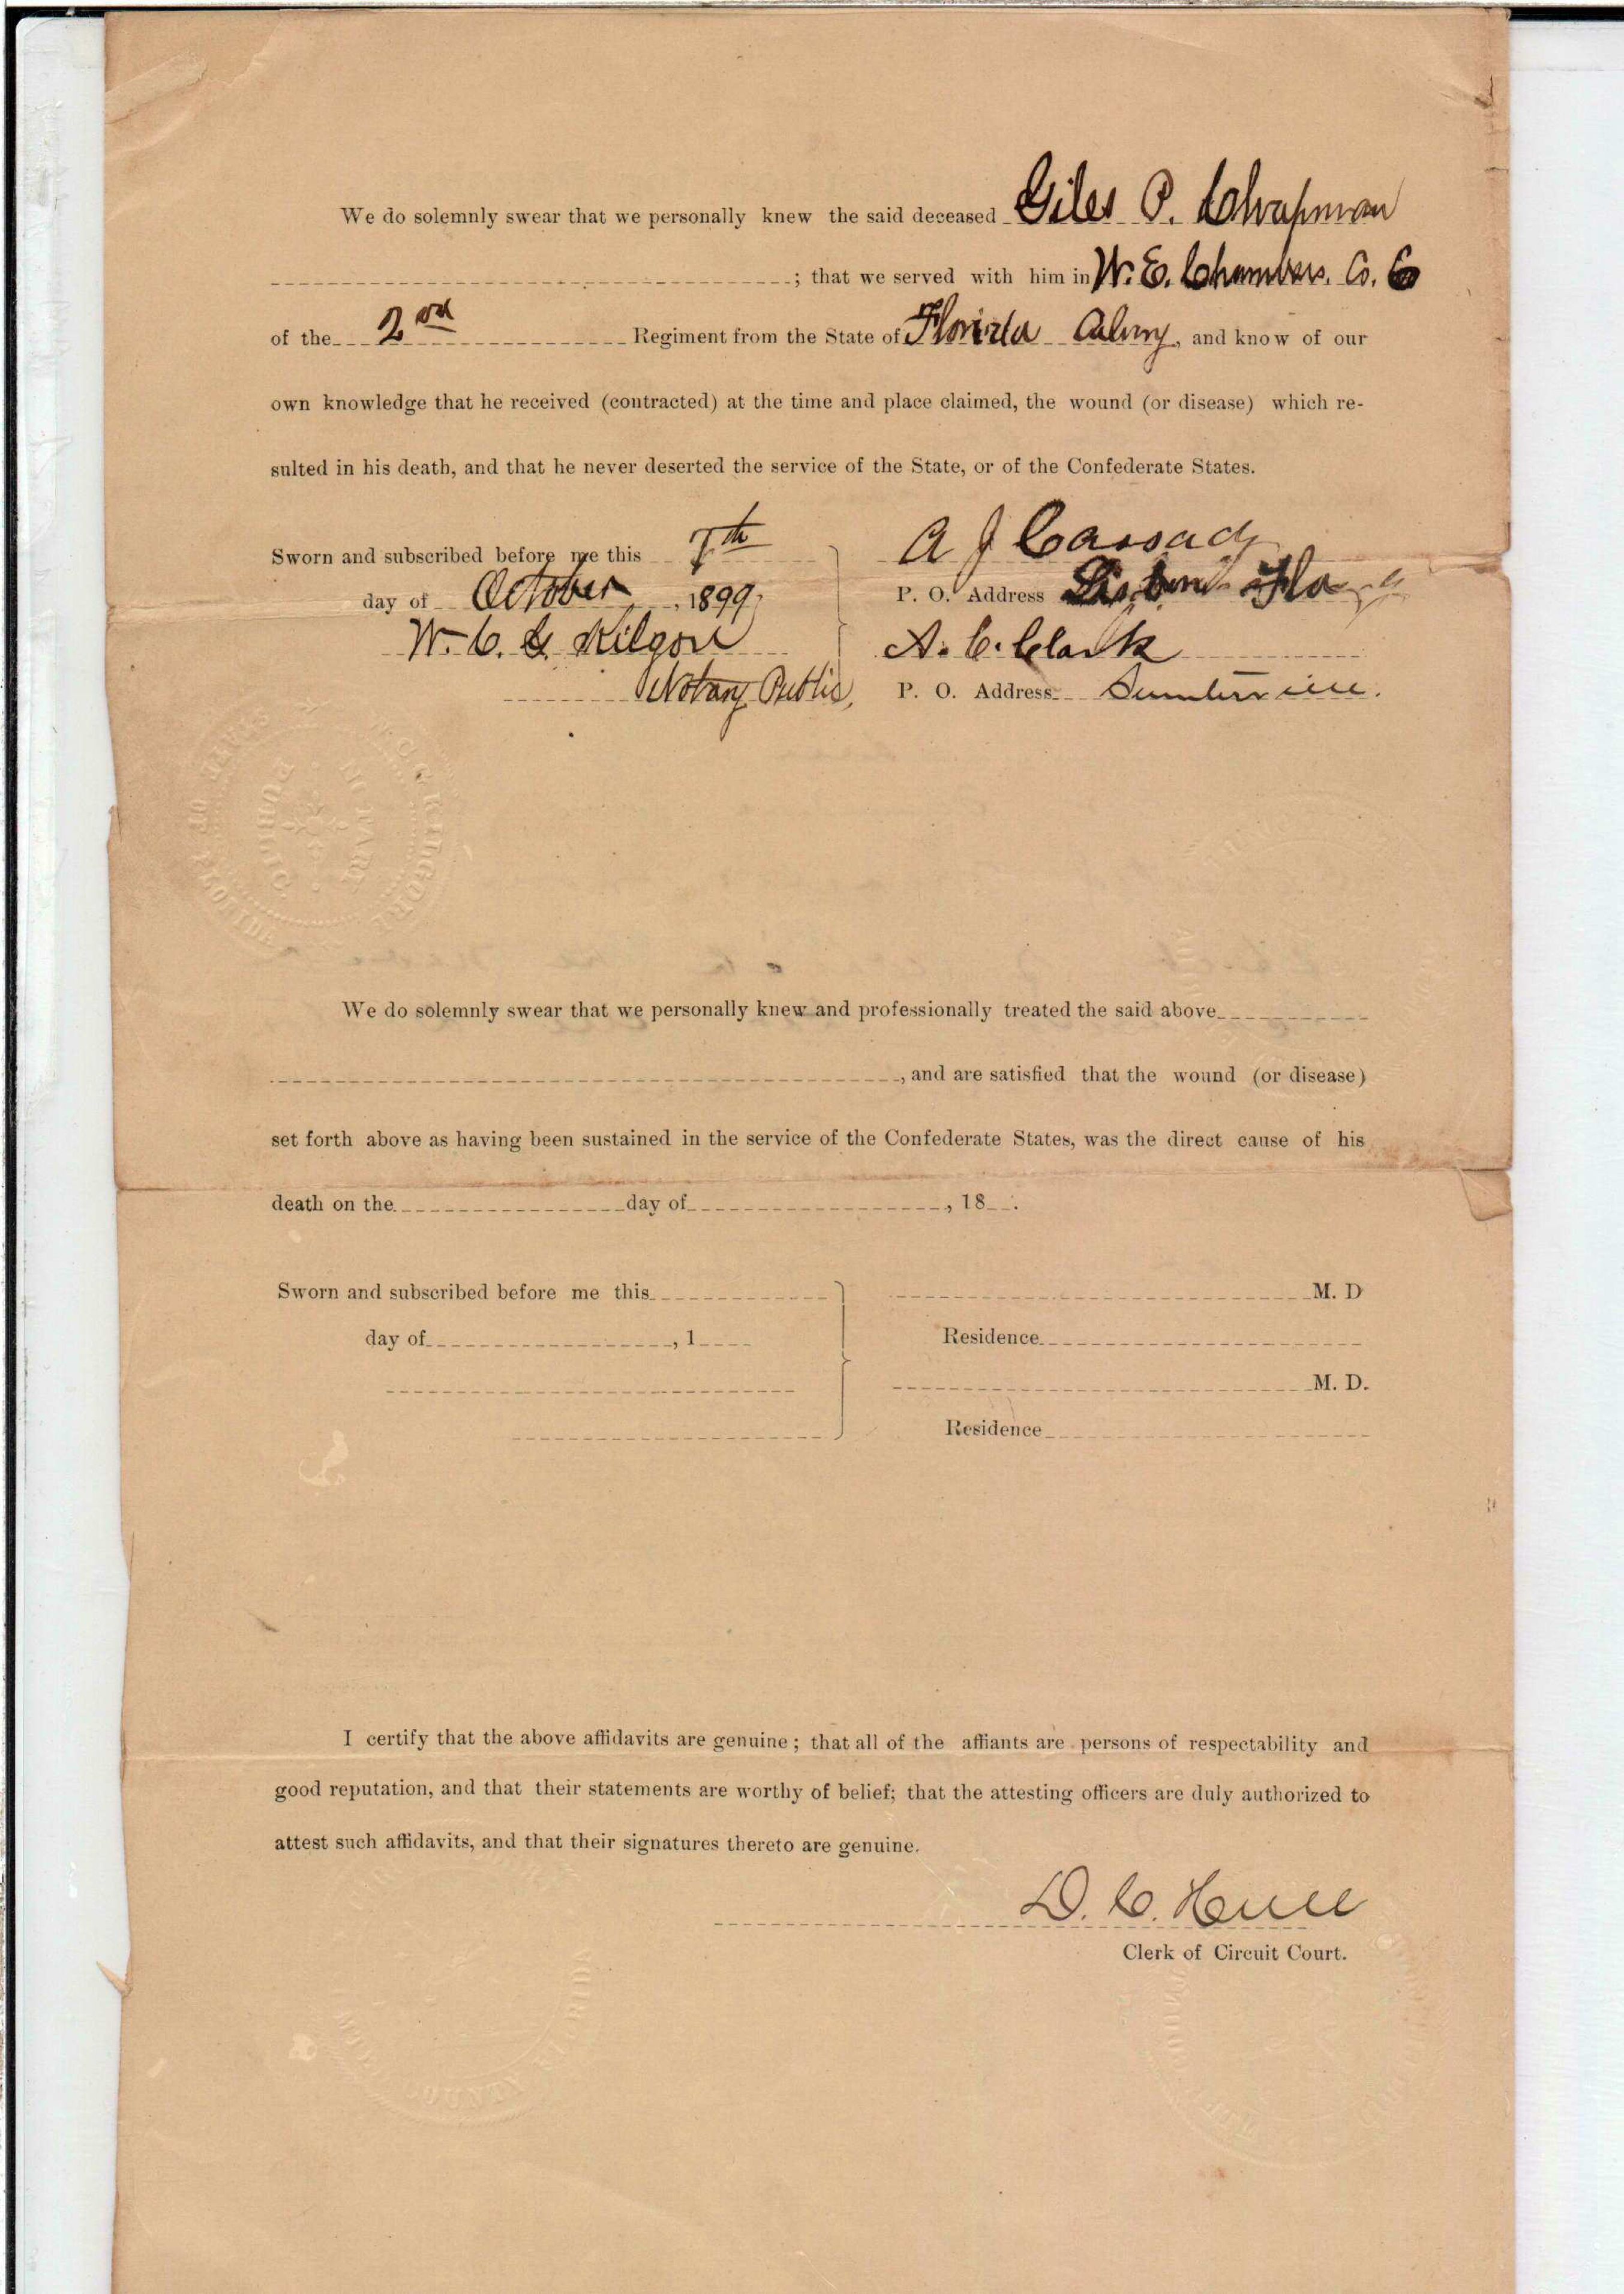 We do solemnly swear that we personally knew the said deceased Giles P. Chapman
; that we served with him in W. E. Chambers. Co. C
of the 2nd Regiment from the State of Florida Calvry, and know of our
own knowledge that he received (contracted) at the time and place claimed, the wound (or disease) which re-
sulted in his death, and that he never deserted the service of the State, or of the Confederate States.
Sworn and subscribed before me this 7th
day of October, 1899.
W. C. G. Kilgore
Notary Public,
A J Cassady
P. O. Address Lisbon Fla
A. C. Clark
P. O. Address Sumterville.
W. C. G. KILGORE
NOTARY PUBLIC
STATE OF FLORIDA
We do solemnly swear that we personally knew and professionally treated the said above
, and are satisfied that the wound (or disease)
set forth above as having been sustained in the service of the Confederate States, was the direct cause of his
death on the day of , 18 .
Sworn and subscribed before me this
day of , 1
M. D
Residence
M. D.
Residence
I certify that the above affidavits are genuine; that all of the affiants are persons of respectability and
good reputation, and that their statements are worthy of belief; that the attesting officers are duly authorized to
attest such affidavits, and that their signatures thereto are genuine.
D. C. Hull
Clerk of Circuit Court.
COUNTY